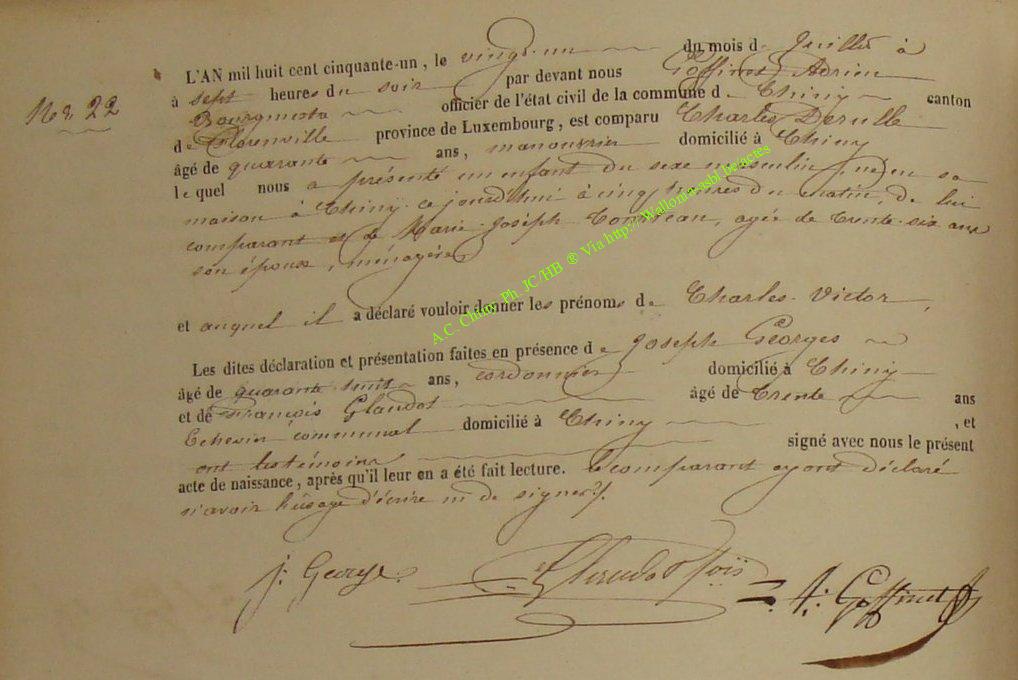 N° 22
L'AN mil huit cent cinquante-un, le vingt-un du mois de Juillet à
à sept heures du soir par devant nous Goffinet Adrien
Bourgmestre officier de l'état civil de la commune de Chiny canton
de Florenville province de Luxembourg, est comparu Charles Derulle
âgé de quarante ans, manouvrier domicilié à Chiny
lequel nous a présenté un enfant du sexe masculin, né en sa
maison à Chiny ce jourd'hui à cinq heures du matin, de lui
comparant et de Marie-Joseph agée de trente-six ans
son épouse, ménagère
et auquel il a déclaré vouloir donner les prénoms de Charles-Victor
Les dites déclaration et présentation faites en présence de Joseph Georges
âgé de quarante huit ans, cordonnier domicilié à Chiny
et de François Glaudot âgé de trente ans
Echevin communal domicilié à Chiny , et
ont les témoins signé avec nous le présent
acte de naissance, après qu'il leur en a été fait lecture. le comparant ayant déclaré
n'avoir l'usage d'écrire ni de signer.
j: George.
A: Goffinet
A.C. Chiny Ph. JC/HB ® Via http://Wallonia.asbl.be/actes